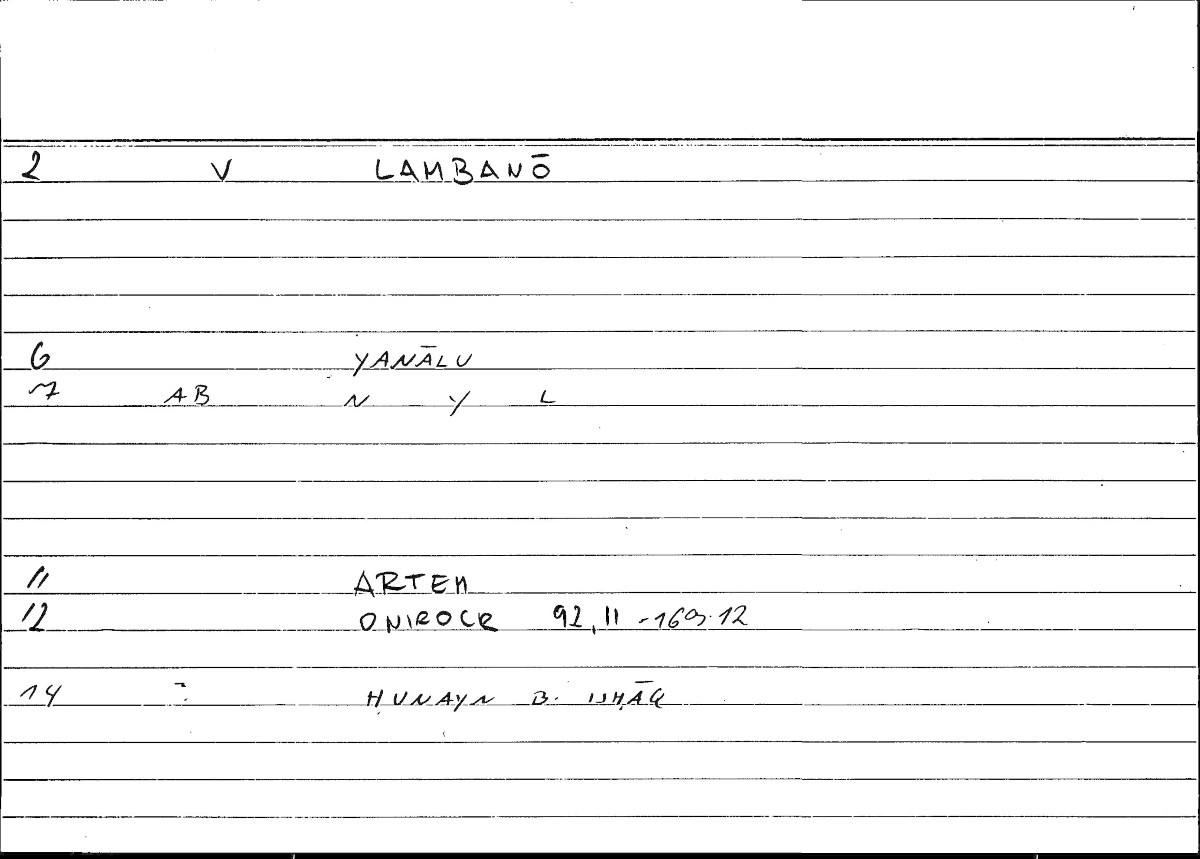 2 V LAMBANŌ
6 YANĀLU
7 AB N Y L
11 ARTEM
12 ONIROCR 92,11 -169.12
14 ḤUNAYN B. ISḤĀQ